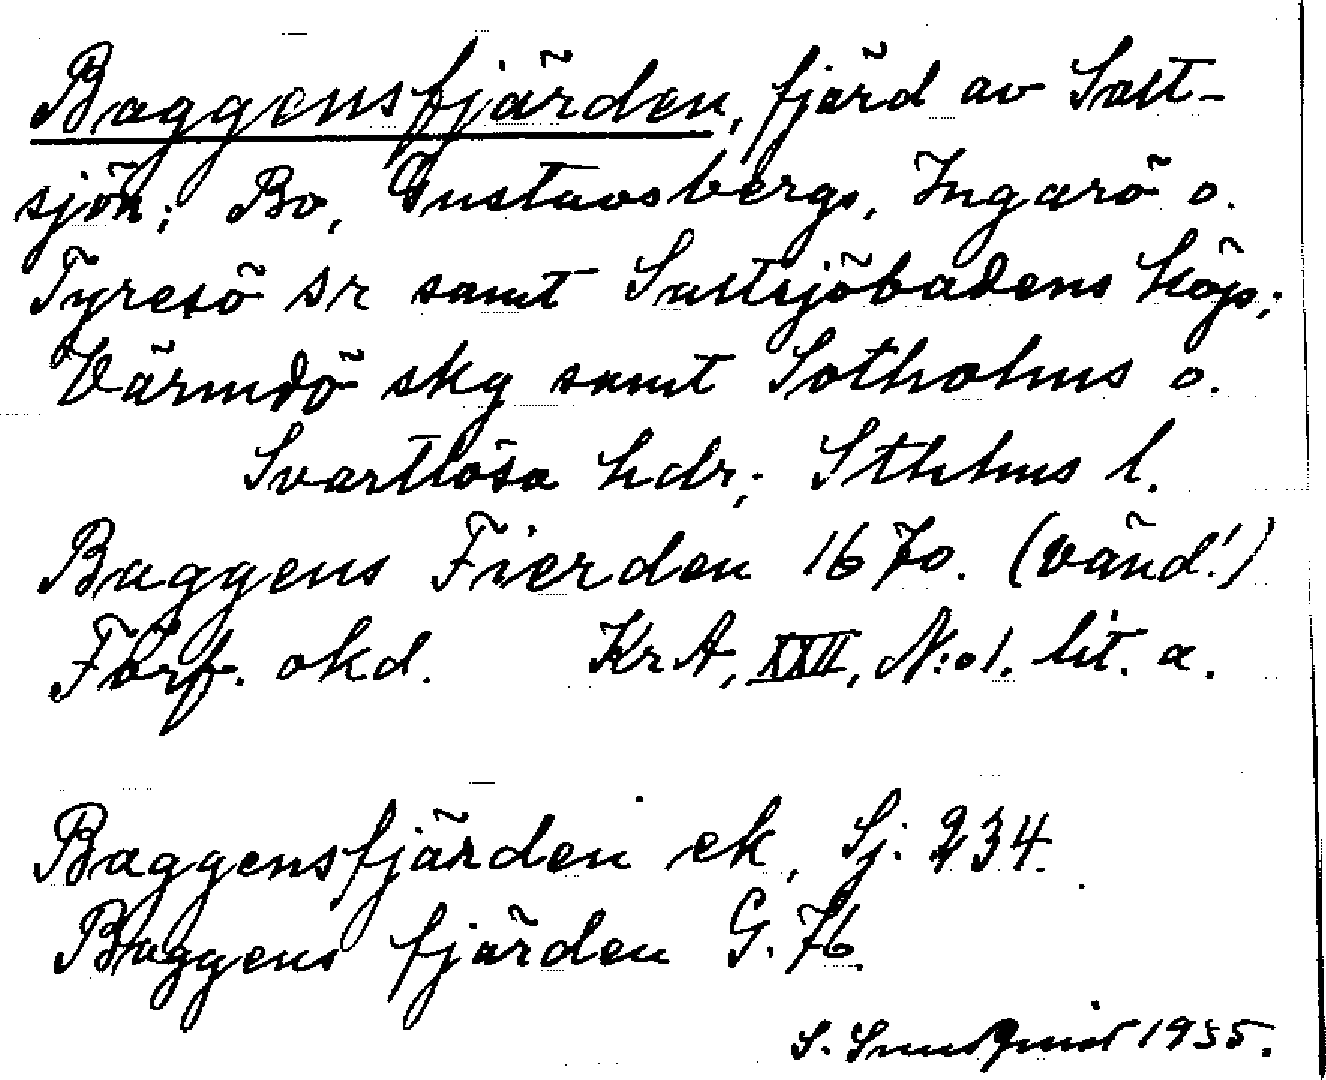 Baggensfjärden, fjärd av Salt-
sjön; Bo, Gustavsbergs, Ingarö o.
Tyresö sr samt Saltsjöbadens köp;
Värmdö skg samt Sotholms o.
Svartlösa hdr; Sthlms l.
Baggens Fierden 1670. (vänd!)
Förf. okd. KrA, XXII, N:o1. lit. a.
Baggensfjärden ek, Sj. 234.
Baggens fjärden G. 76.
S. Sundquist 1935.